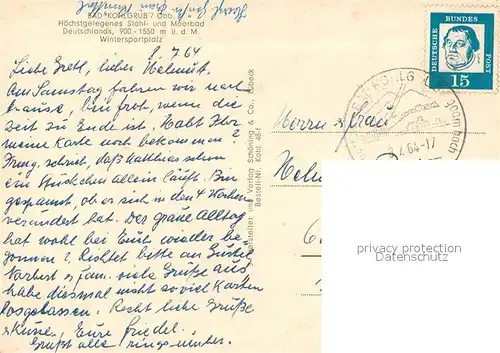 BAD KOHLGRUB / Obb.
Höchstgelegenes Stahl- und Moorbad
Deutschlands, 900 - 1550 m ü. d. M.
Wintersportplatz
8. 7. 64
Liebe Gretl, lieber Helmut.
Am Samstag fahren wir nach
hause, bin froh, wenn die
Zeit zu Ende ist. Habt Ihr
meine Karte noch bekommen?
schreibt, daß Matthias schon
ein Stückchen allein läuft. Bin
gespannt ob er sich in den 4 Wochen
verändert hat. Der graue Alltag
hat wohl bei Euch wieder be-
gonnen? Richtet bitte an Gustel
Norbert u. Fam. viele Grüße aus
habe diesmal nicht so viel Karten
losgelassen. Recht liebe Grüße
Eure Friedel.
Grüßt alle ringsunter.
Hersteller und Verlag Schöning & Co., Lübeck
Bestell-Nr. Kohl
DEUTSCHE BUNDESPOST
15
7. 64-17
Herrn u. Frau
privacy protection
Privatsphären Schutz